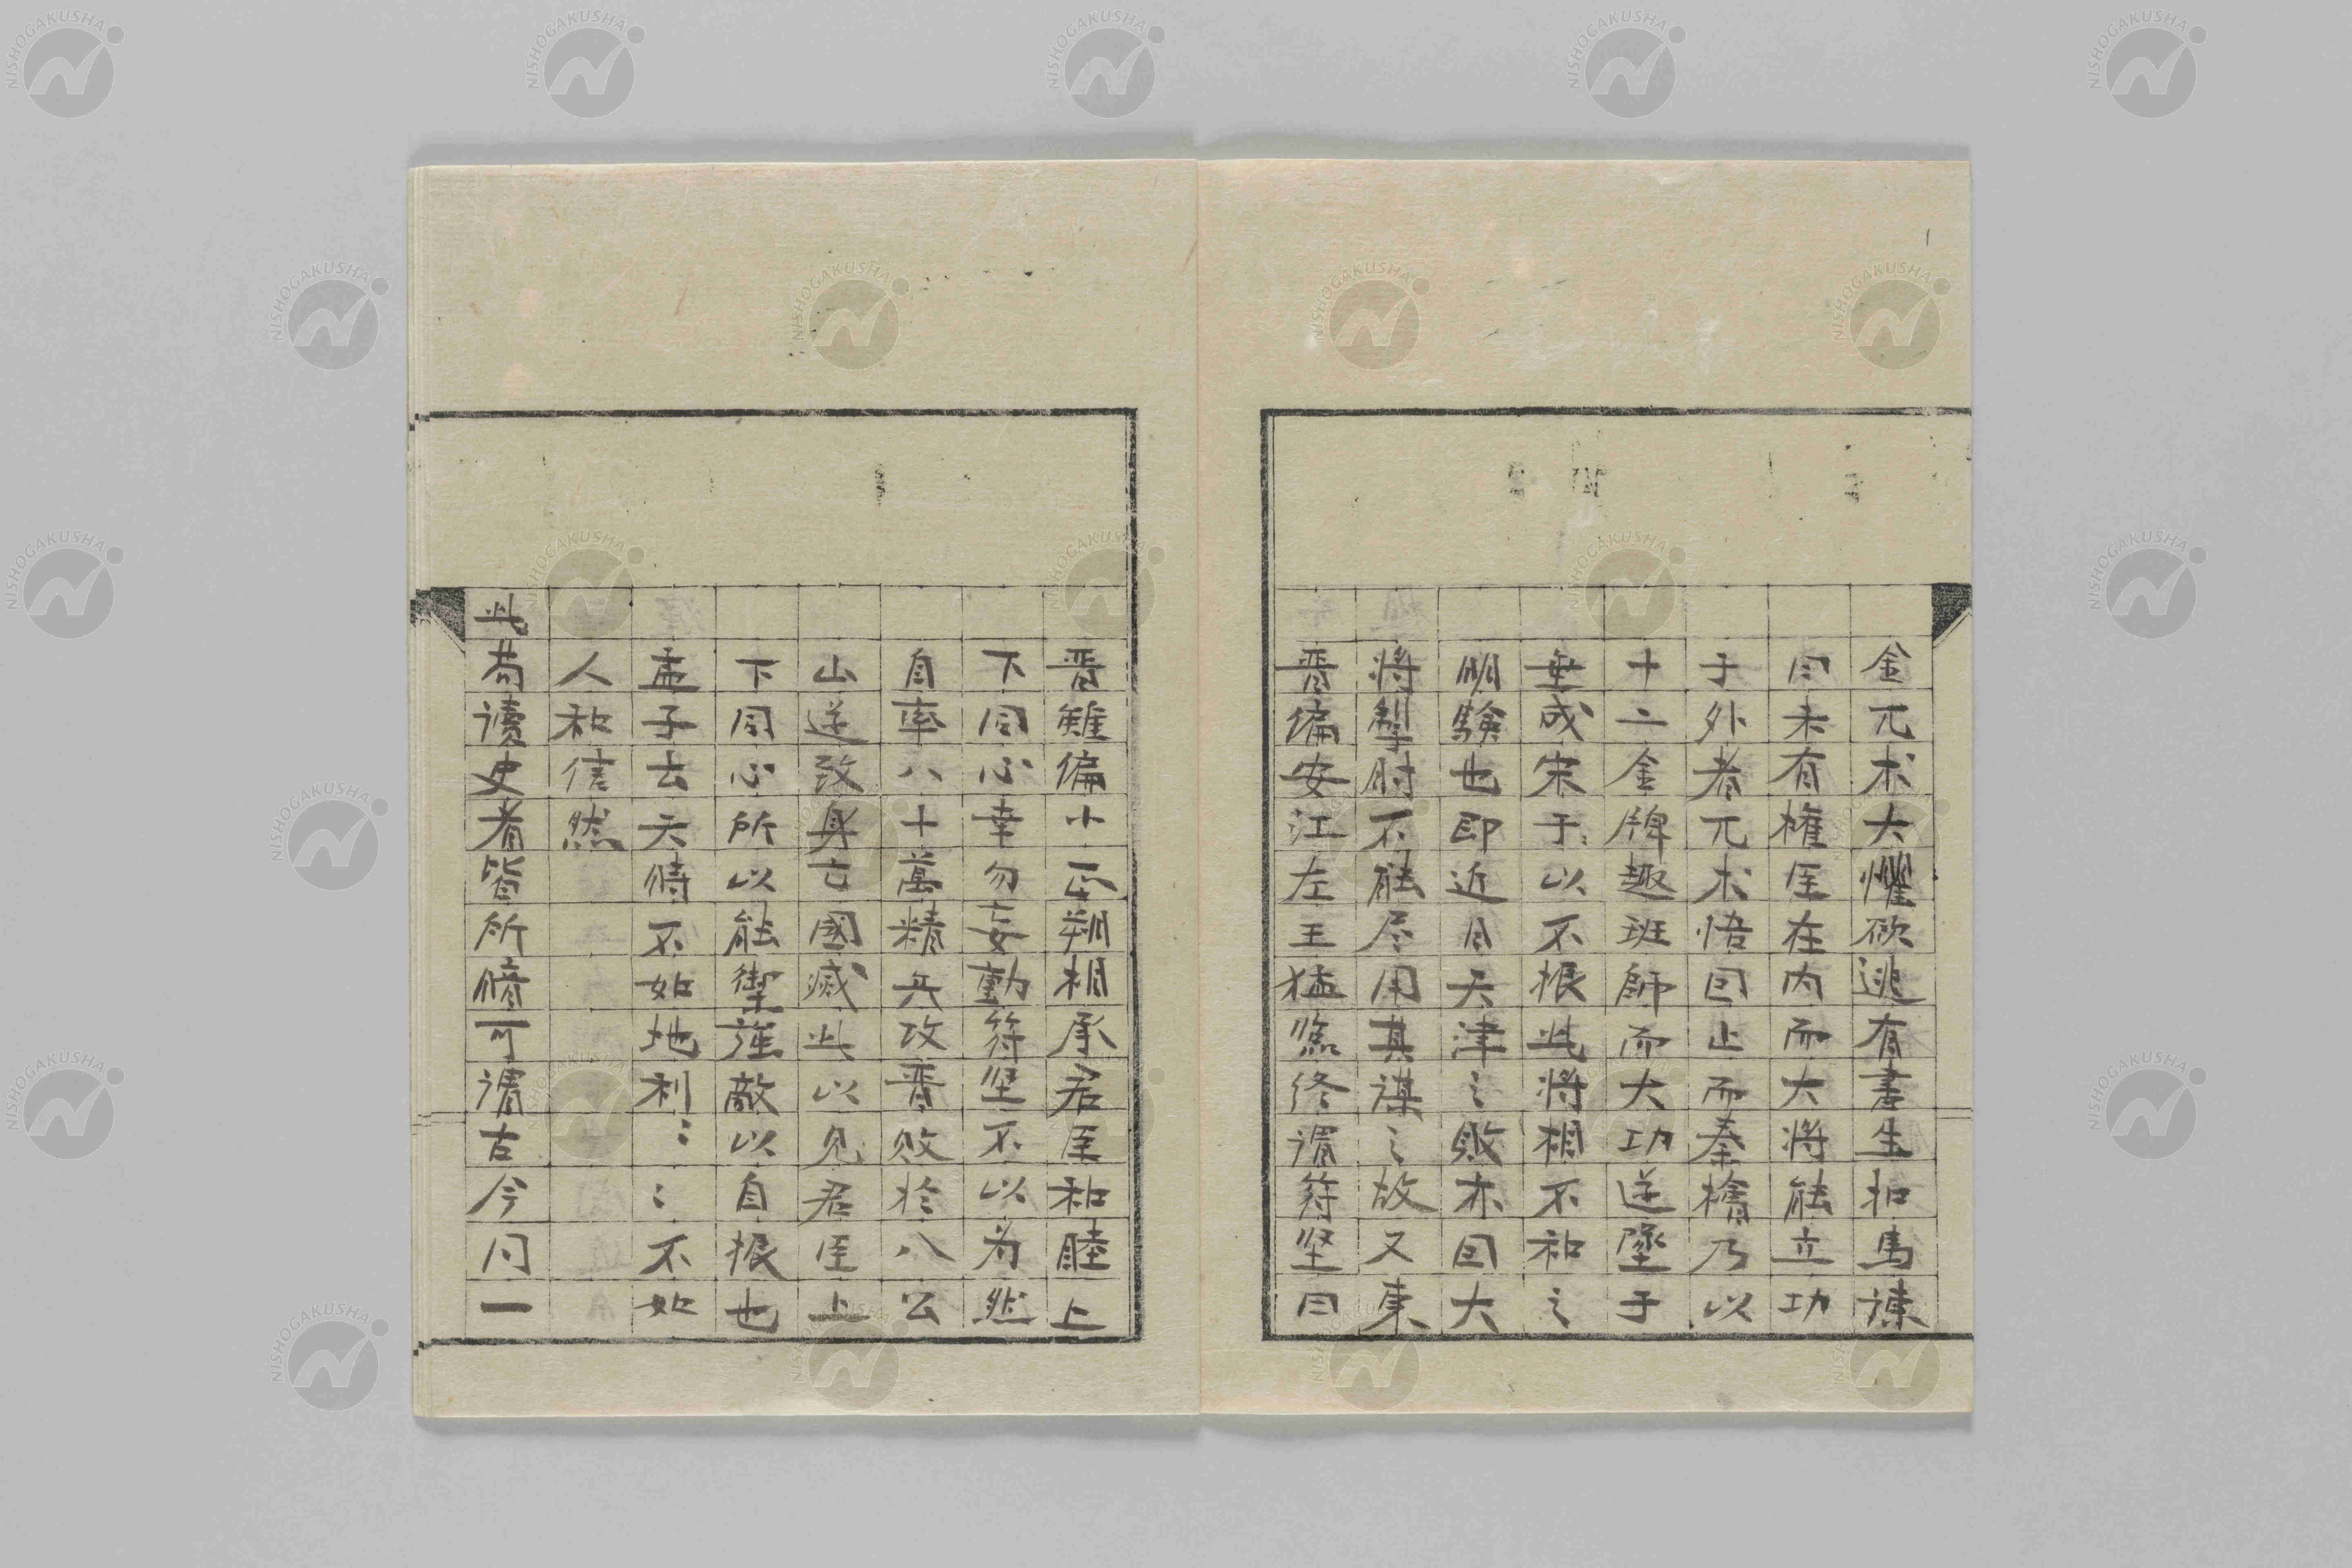 金兀术大懼欲逃有書生扣馬諫
曰未有權臣在內而大將能立功
于外者兀术悟囙止而秦檜乃以
十二金牌趣班師而大功遂墜于
垂成宋于以不振此將相不和之
明驗也即近日天津之敗亦囙大
將掣肘不能尽用其謀之故又東
晋偏安江左王猛臨終謂符坚曰
晋雖偏小正朔相承君臣和睦上
下同心幸勿妄動符坚不以为然
自率八十萬精兵攻晋敗於八公
山遂致身亡國滅此以见君臣上
下同心所以能禦强敵以自振也
孟子去天時不如地利〻〻不如
人和信然
此为讀史者皆所脩可謂古今同一
NISHOGAKUSHA